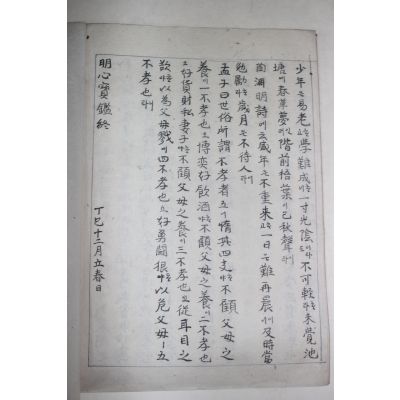 少年은易老하고學難成하니一寸光陰이라도不可輕하라未覺池
塘에春草夢이어階前梧葉이已秋聲이라
陶淵明詩에云盛年은不重來하고一日은難再晨이니及時當
勉勵하라歲月은不待人이니라
孟子曰世俗所謂不孝者五니惰其四支하야不顧父母之
養이一不孝也요博奕好飮酒하야不顧父母之養이二不孝也
요好貨財私妻子하야不顧父母之養이三不孝也요從耳目之
欲하야以為父母戮이四不孝也요好勇鬪狠하야以危父母ㅣ五
不孝也니라
明心寶鑑終
丁巳十二月立春日